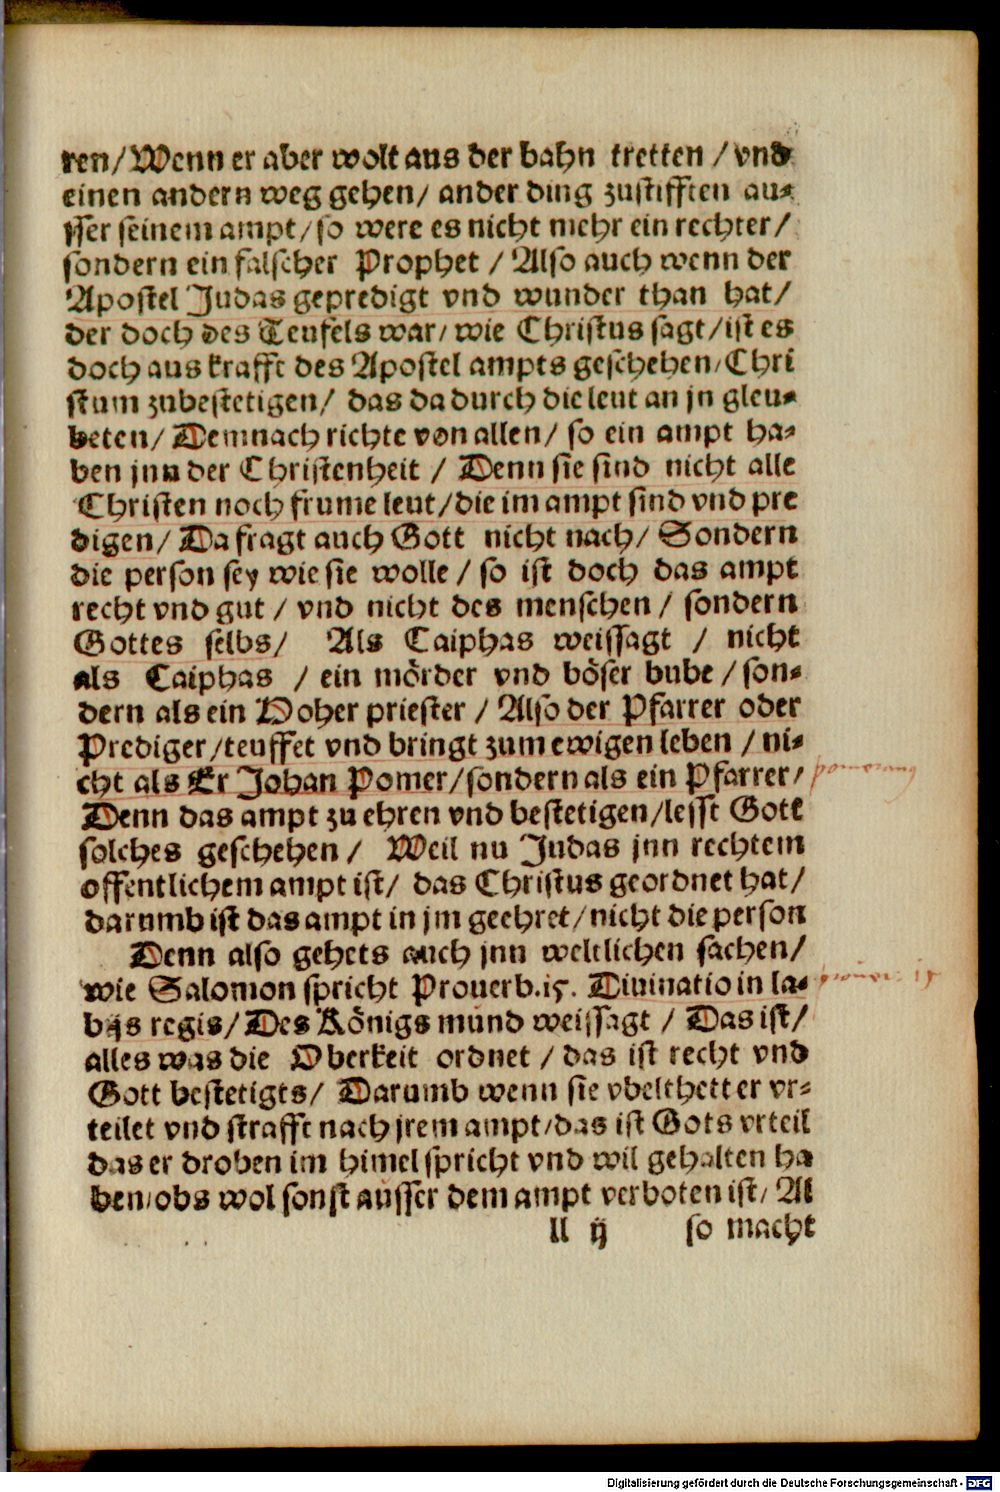 ren/ Wenn er aber wolt aus der bahn tretten / vnd
einen andern weg gehen/ ander ding zustifften au⸗
sser seinem ampt/ so were es nicht mehr ein rechter/
sondern ein falscher Prophet / Also auch wenn der
Apostel Judas gepredigt vnd wunder than hat/
der doch des Teufels war/ wie Christus sagt/ ist es
doch aus krafft des Apostel ampts geschehen/ Chri
stum zubestetigen/ das dadurch die leut an jn gleu⸗
beten/ Demnach richte von allen/ so ein ampt ha⸗
ben jnn der Christenheit / Denn sie sind nicht alle
Christen noch frume leut/ die im ampt sind vnd pre
digen/ Da fragt auch Gott nicht nach/ Sondern
die person sey wie sie wolle / so ist doch das ampt
recht vnd gut / vnd nicht des menschen / sondern
Gottes selbs/ Als Caiphas weissagt / nicht
als Caiphas / ein mörder vnd böser bube / son⸗
dern als ein Hoher priester / Also der Pfarrer oder
Prediger/ teuffet vnd bringt zum ewigen leben / ni⸗
cht als Er Johan Pomer/ sondern als ein Pfarrer/
Denn das ampt zu ehren vnd bestetigen/ lesst Gott
solches geschehen / Weil nu Judas jnn rechtem
offentlichem ampt ist/ das Christus geordnet hat/
darumb ist das ampt in jm geehret/ nicht die person
Denn also gehets auch jnn weltlichen sachen/
wie Salomon spricht Prouerb. 15. Diuinatio in la⸗
bijs regis/ Des Königs mund weissagt / Das ist/
alles was die Oberkeit ordnet / das ist recht vnd
Gott bestetigts/ Darumb wenn sie vbelthetter vr⸗
teilet vnd strafft nach jrem ampt/ das ist Gots vrteil
das er droben im himel spricht vnd wil gehalten ha
ben/ obs wol sonst ausser dem ampt verboten ist/ Al
ll ij so macht
Digitalisierung gefördert durch die Deutsche Forschungsgemeinschaft - DFG